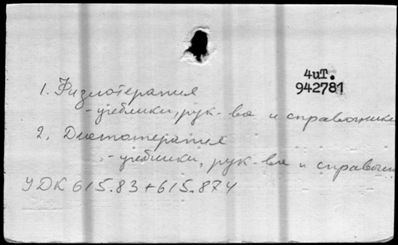 4иТ.
942781
1. Физиотерапия
- учебники, рук-ва и справочники
2. Диетотерапия
- учебники, рук-ва и справочн
УДК 615.83+615.874